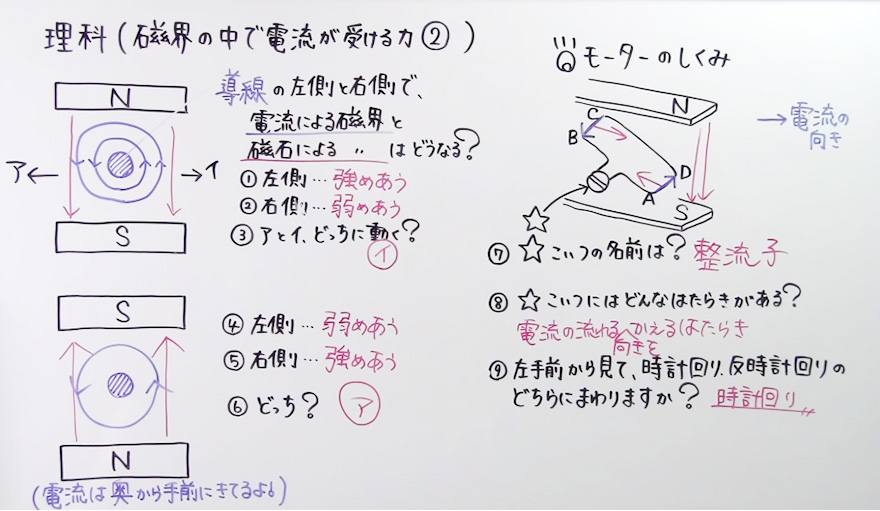 理科(磁界の中で電流が受ける力②)
N
ア
イ
S
導線の左側と右側で、
電流による磁界と
磁石による 〃 はどうなる?
①左側…強めあう
②右側…弱めあう
③アとイ、どっちに動く?
イ
S
N
④左側…弱めあう
⑤右側…強めあう
⑥どっち? ア
(電流は奥から手前にきてるよ!)
モーターのしくみ
N
→電流の
向き
C
B
D
A
S
☆
⑦☆こいつの名前は? 整流子
⑧☆こいつにはどんなはたらきがある?
電流の流れるかえるはたらき
向きを
⑨左手前から見て、時計回り、反時計回りの
どちらにまわりますか? 時計回り